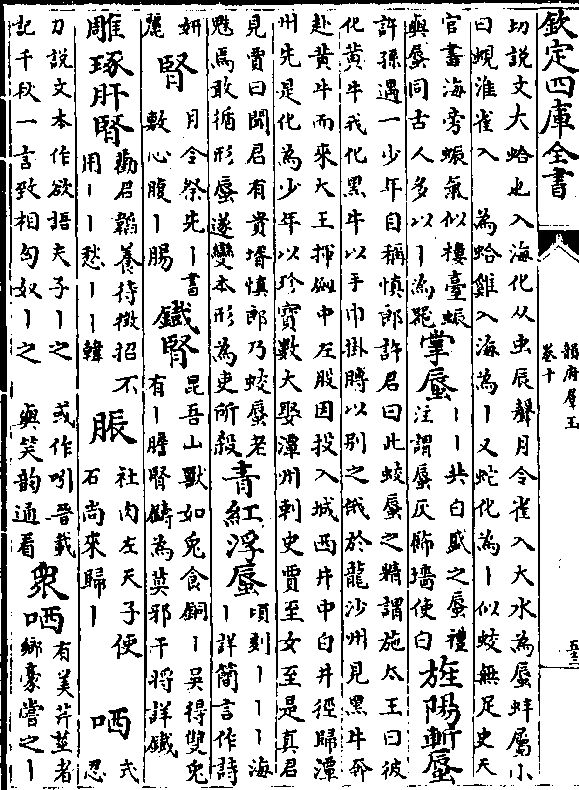 欽定四庫全書
切說文大蛤也入海化从虫辰聲月令雀入大水為蜃蚌屬小
曰蜆淮雀入　為蛤雞入海為丨又蛇化為丨似蛟無足史天
官書海旁蜄氣似樓臺蜄
與蜃同古人多以丨為器
掌蜃
丨丨共白盛之蜃禮
注謂蜃灰飾墻使白
旌陽斬蜃
許孫遇一少年自稱慎郎許君曰此蛟蜃之精謂施太王曰彼
化黄牛我化黑牛以手巾掛膊以别之俄於龍沙州見黑牛奔
赴黄牛而來大王揮劒中左股因投入城西井中白井徑歸潭
州先是化為少年以珍寶數大娶潭州刺史賈至女至是真君
見賈曰聞君有貴壻慎郎乃蛟蜃老
魅焉敢循形蜃遂變本形為吏所殺
青紅浮蜃
頃刻丨丨丨海
丨詳簡言作詩
妍
麗
腎
月令祭先丨書
敷心腹丨腸
鐡腎
昆吾山獸如兔食銅丨吳得雙兔
有丨膽腎鑄為莫邪干將詳鐡
雕琢肝腎
勸君韜養待徵招不
用丨丨愁丨丨韓
脤
社肉左天子使
石尚來歸丨
哂
式
忍
刀說文本作欲語夫子丨之　或作吲晉載
記千秋一言致相匈奴丨之　與笑韵通看
衆哂
有美芹莖者
鄉豪嘗之丨
韻府羣玉
卷十